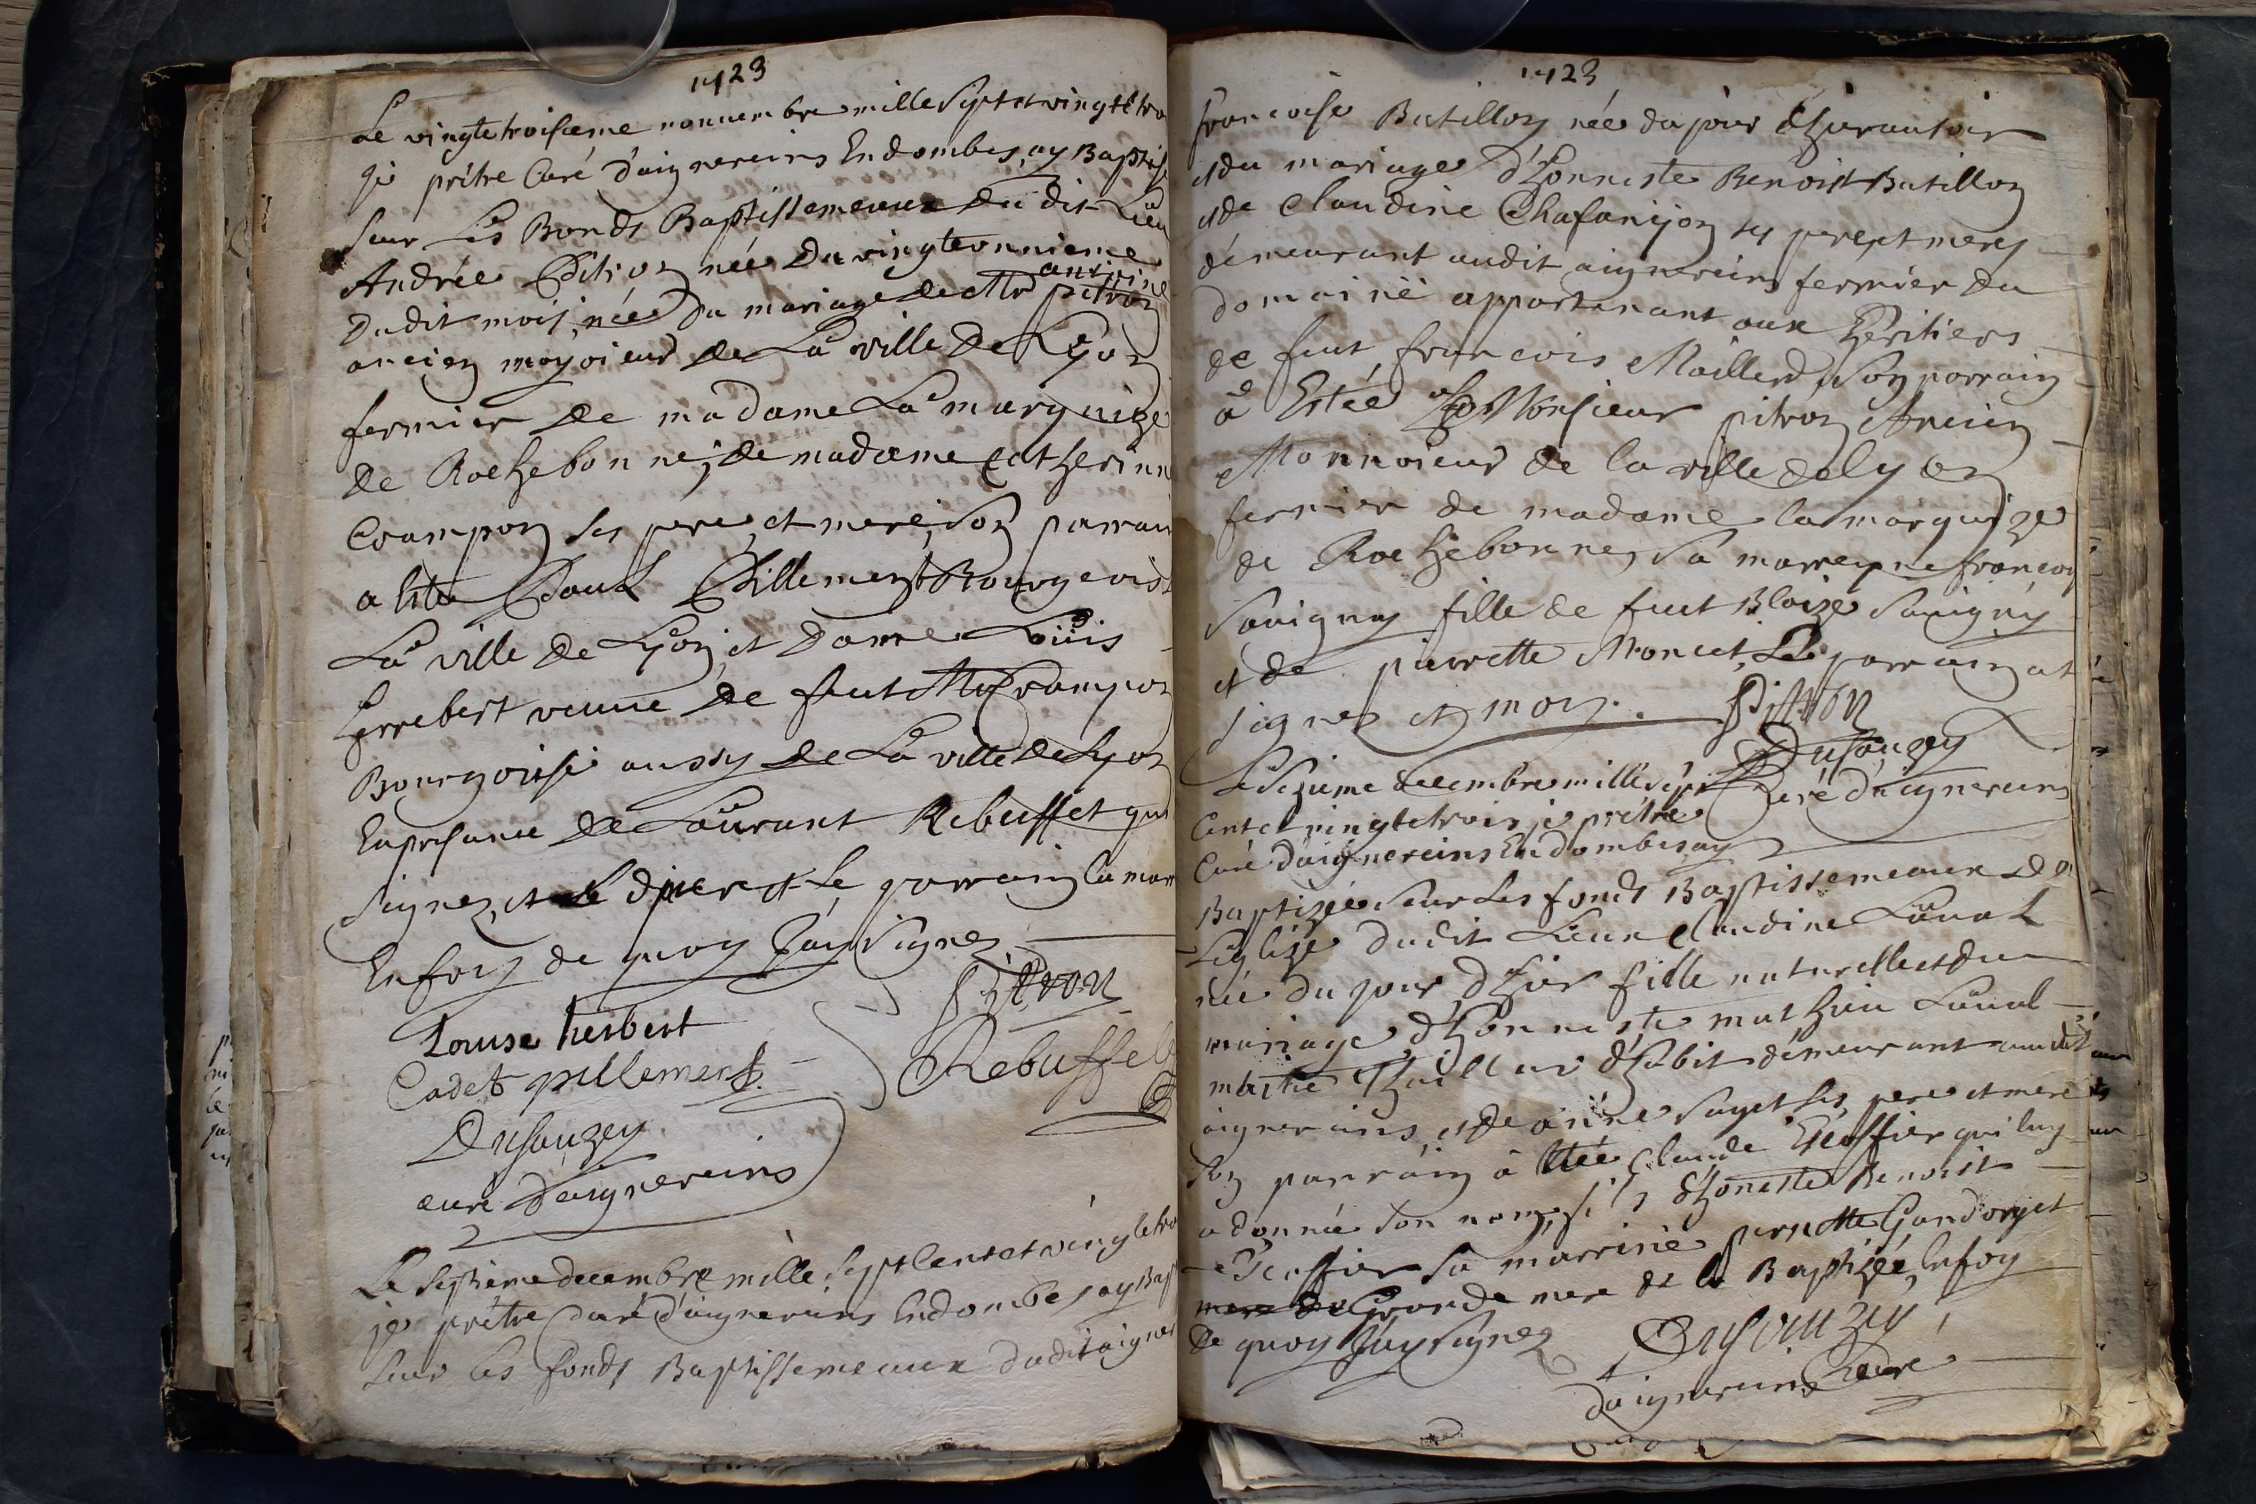 1723
Le vingtetroisieme nouuembre mille Sept et vingtetro
je prêtre Curé d'aignereins En dombes, ay Baptis
Sur Les Fonds Baptissemeaux du dit Lieu
Andrée Pitron née Du vingteunnieme
antoine
Dudit mois, née Du mariage de Mr pitron
ancien moyoieur de La ville De Lyon
fermier de madame La marquize
de Rochebonne, de madame Catherinne
Crampon ses pere et mere, Son parrain
a Estée Paul Pillement Bourgeois
La ville de Lyon, et Dame Loüis
herrebert veuue de feut Mr Crampon
Bourgoisse aussy de La ville de Lyon
En presance de Laurant Rebuffet qui
Signez, et Le d. pere et Le parrain La mar
En foy de quoy J'ay Signez
pitron
Louise herbert
Cadet pillement
Rebuffet
Dusauzey
curé D'aignereins
Le Septieme decembre mille Sept Cent et vingtetro
je prêtre Curé d'aignereins En dombes ay Bap
Sur Les fonds Baptissemeaux dudit aigner
1723
francoise Batillon née du jour d'hier au soir
et du mariage d'honneste Benoist Batillon
et de Claudine Chafanjon ses pere et mere
démeurant audit aignereins fermier du
domainé appartenant aux Heritiers
de feut francois Maillerd, Son parrain
â Estée Monsieur pitron Ancien
Monnoieur de la ville de Lyon
fermier de madame la marquize
de Rochebonne, sa marreyne francois
Sauigny fille de feut Blaize Sauigny
et de pierrette Moncet, Le parrain at
signez et moy. Pitron
Dusauzey
Curé d'aignereins
Le Sezieme decembre mille Sept
Cent et vingtetrois, je prêtre
Curé d'aignereins En dombes ay
Baptizée Sur Les fonds Baptissemeaux De
L'eglize dudit Lieux Claudine Laual
née du jour d'hier fille naturelle et du
mariage d'honneste mathieu Laual
maitre Thailleur d'habit démeurant audit
aignereins, et de anne Sayet ses pere et mere
Son parrain â Etée Claude Escoffier qui luy
a donnée son nom, fils d'honeste Benoist
Escoffier Sa marriné pernette Gandoryet
mere de Grande mere de la Baptizée, En foy
de quoy J'ay Signez Dusauzey
D'aignereins Curé